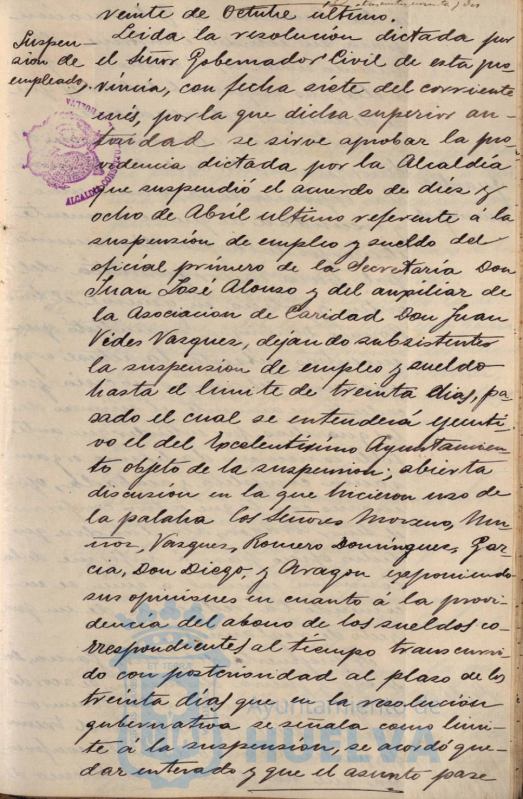 veinte de Octubre ultimo.
Suspen-
sion de
empleados.
Leida la resolucion dictada por
el Señor Gobernador Civil de esta pro-
vincia, con fecha siete del corriente
mes, por la que dicha superior au-
toridad se sirve aprobar la pro-
videncia dictada por la Alcaldía
que suspendió el acuerdo de diez y
ocho de Abril ultimo referente á la
suspensión de empleo y sueldo del
oficial primero de la Secretaría Don
Juan José Alonso y del auxiliar de
la Asociacion de Caridad Don Juan
Vides Vasquez, dejando subsistentes
la suspension de empleo y sueldo
hasta el limite de treinta dias, pa-
sado el cual se entenderá ejecuti-
vo el del Excelentísimo Ayuntamien-
to objeto de la suspension; abierta
discusión en la que hicieron uso de
la palabra los Señores Moreno, Mu-
ñoz, Vasquez, Romero Dominguez, Gar-
cia, Don Diego, y Aragon exponiendo
sus opiniones en cuanto á la provi-
dencia del abono de los sueldos co-
rrespondientes al tiempo transcurri-
do con posterioridad al plazo de los
treinta días que en la resolución
gubernativa se señala como limi-
te á la suspensión, se acordó que-
dar enterado y que el asunto pase
Ayuntamiento de
HUELVA